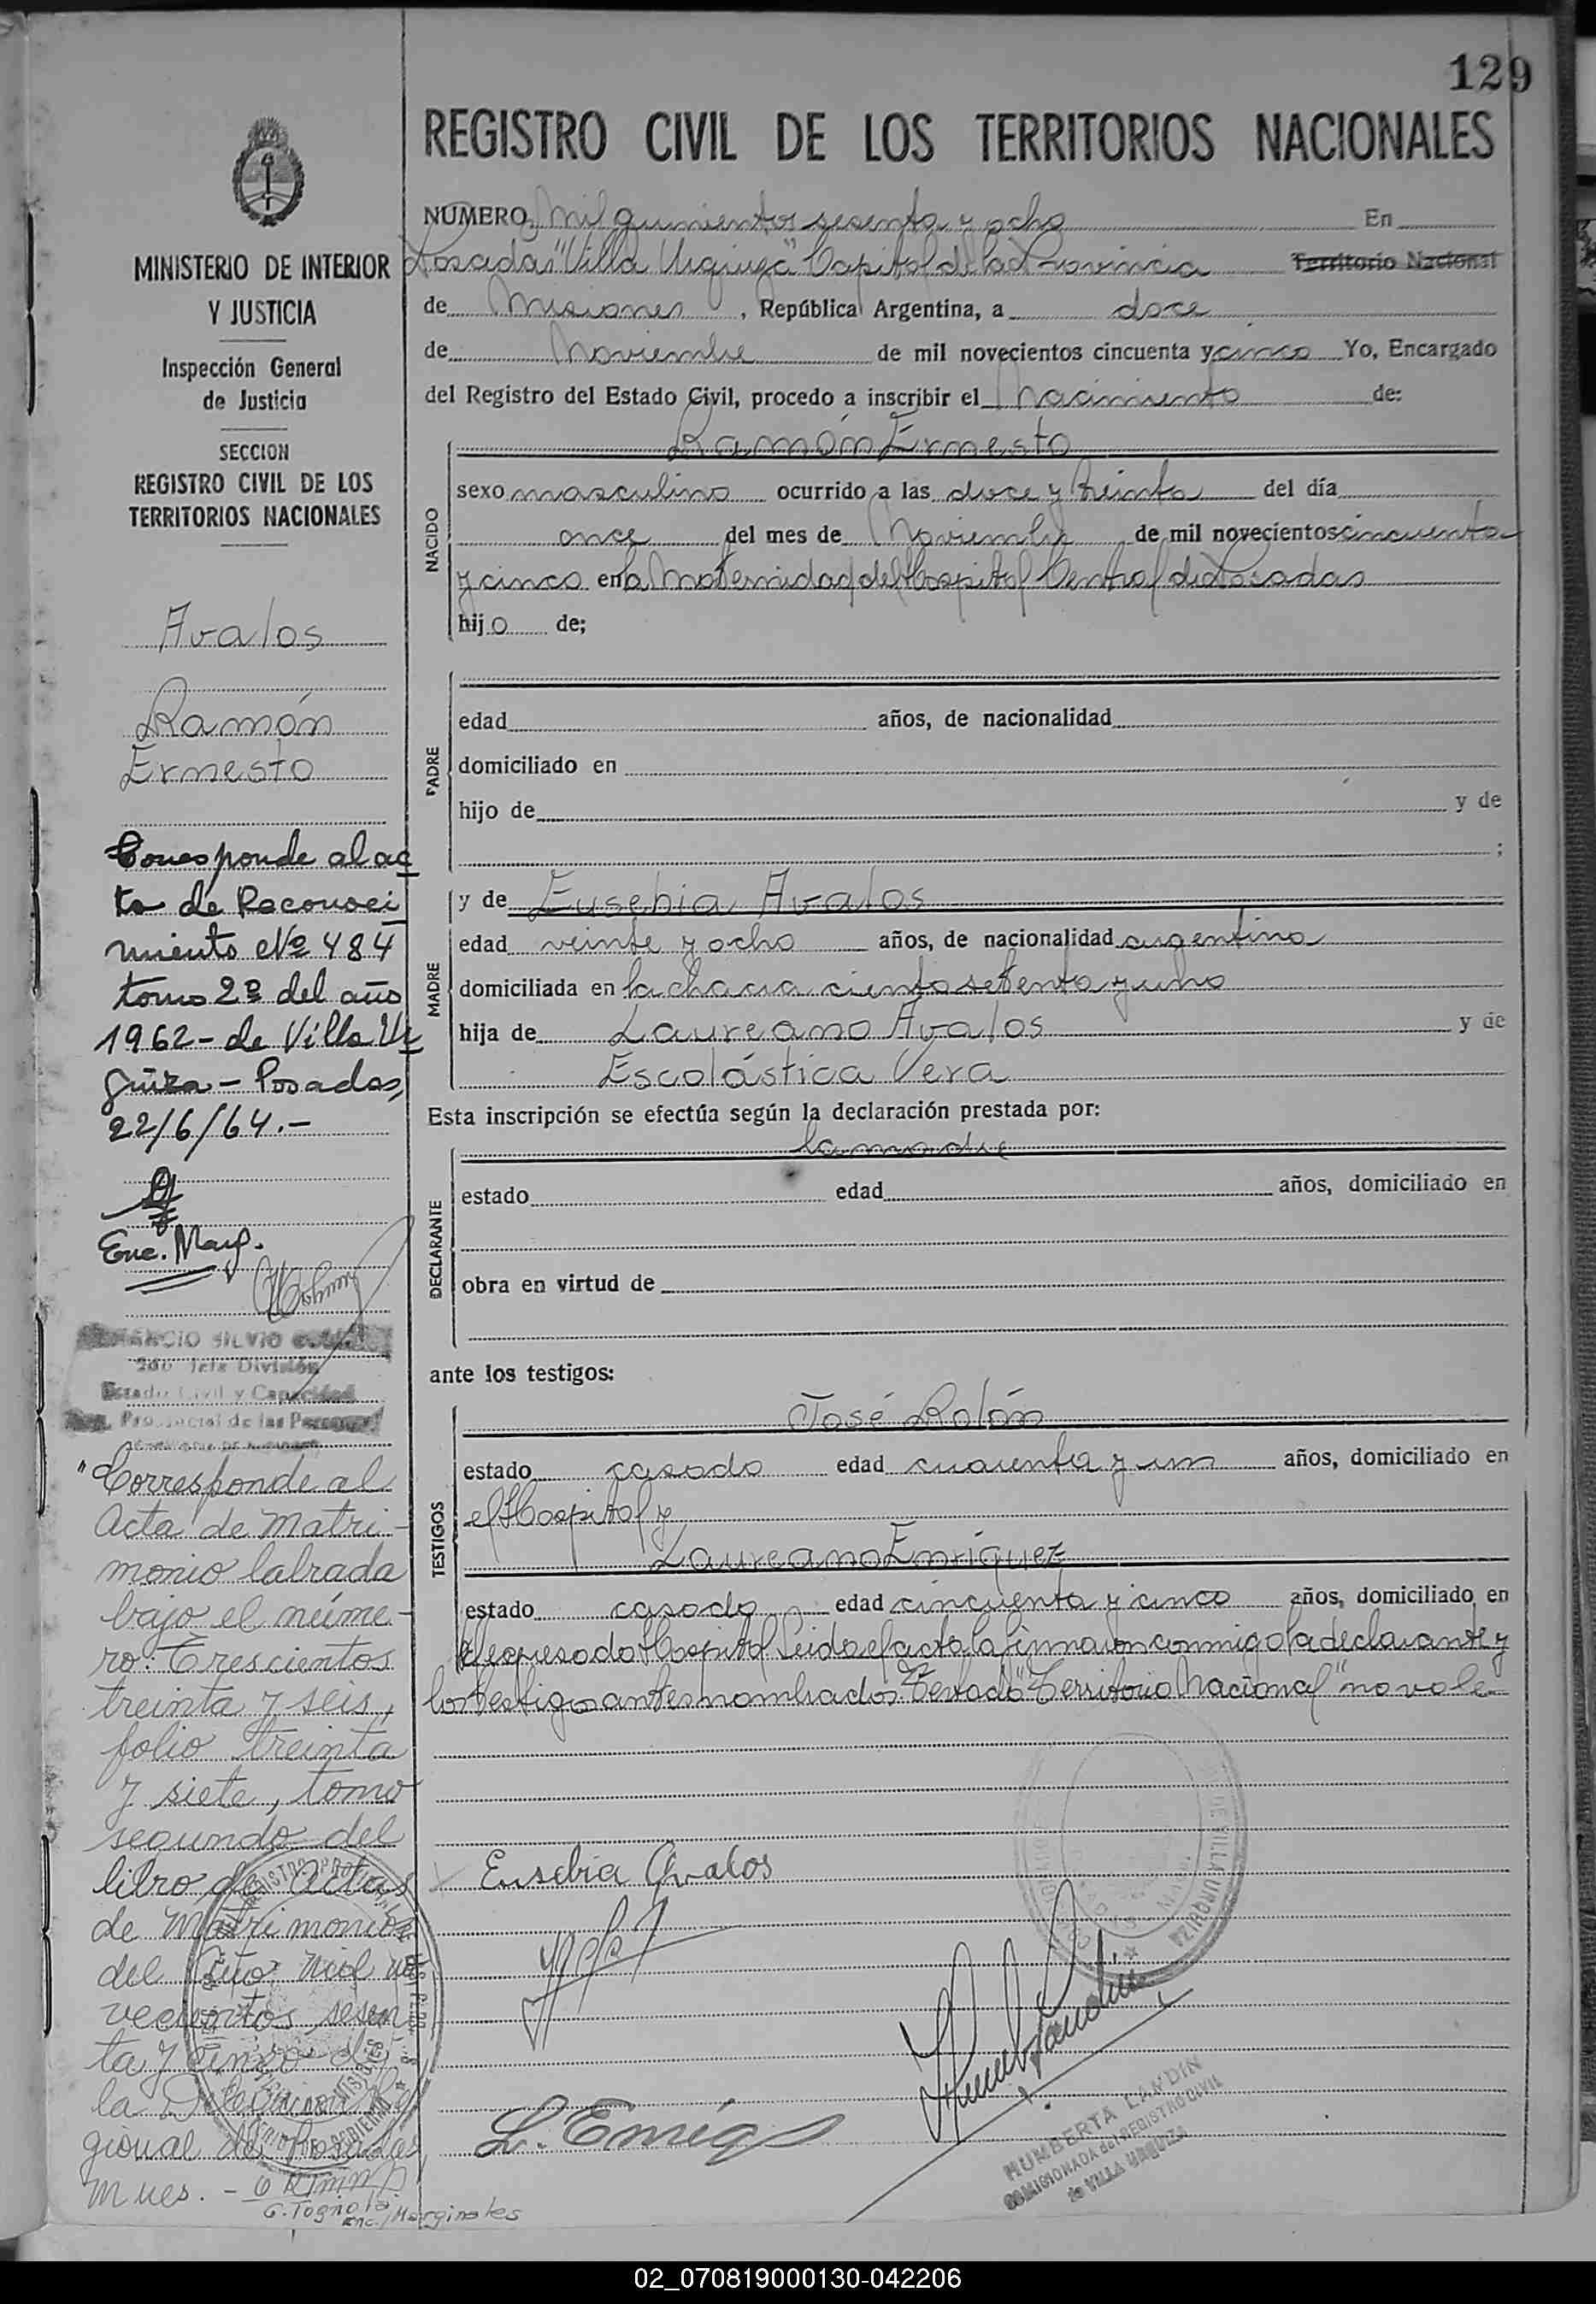 129
REGISTRO CIVIL DE LOS TERRITORIOS NACIONALES
MINISTERIO DE INTERIOR
Y JUSTICIA
Inspección General
de Justicia
SECCION
REGISTRO CIVIL DE LOS
TERRITORIOS NACIONALES
Avalos
Ramón
Ernesto
Corresponde al ac
ta de Reconoci
miento Nº 484
tomo 2º del año
1962 - de Villa Ur
quiza - Posadas,
22/6/64.-
Enc. Marg.
SILVIO
2do Jefe División
Estado Civil y Capacidad
Provincial de las Personas
"Corresponde al
Acta de Matri-
monio labrada
bajo el núme-
ro: Trescientos
treinta y seis,
folio treinta
y siete, tomo
segundo del
libro de actas
de Matrimonios
del Año: Mil no
vecientos sesen
ta y cinco de
la Delegación Re
gional de Posadas
Mnes. -
G. Tognola
Enc. Marginales
NUMERO Mil quinientos sesenta y ocho En
Posadas "Villa Urquiza" Capital de la Provincia Territorio Nacional
de Misiones, República Argentina, a doce
de Noviembre de mil novecientos cincuenta y cinco Yo, Encargado
del Registro del Estado Civil, procedo a inscribir el Nacimiento de:
NACIDO
Ramón Ernesto
sexo masculino ocurrido a las doce y treinta del día
once del mes de Noviembre de mil novecientos cincuenta
y cinco en la Maternidad del Hospital Central de Posadas
hijo de;
PADRE
edad años, de nacionalidad
domiciliado en
hijo de y de
;
MADRE
y de Eusebia Avalos
edad veinte y ocho años, de nacionalidad argentina
domiciliada en la chacra ciento setenta y uno
hija de Laureano Avalos y de
Escolástica Vera
Esta inscripción se efectúa según la declaración prestada por:
DECLARANTE
la madre
estado edad años, domiciliado en
obra en virtud de
ante los testigos:
TESTIGOS
José Rolón
estado casado edad cuarenta y un años, domiciliado en
el Hospital y
Laureano Enriquez
estado casado edad cincuenta y cinco años, domiciliado en
el expresado Hospital Leida el acta la firmaron conmigo la declarante y
los testigos antes nombrados. Testado "Territorio Nacional" no vale
Eusebia Avalos
L. Enriq
VILLA URQUIZA
HUMBERTA LANDIN
COMISIONADA del REGISTRO CIVIL
de VILLA URQUIZA
02_070819000130-042206